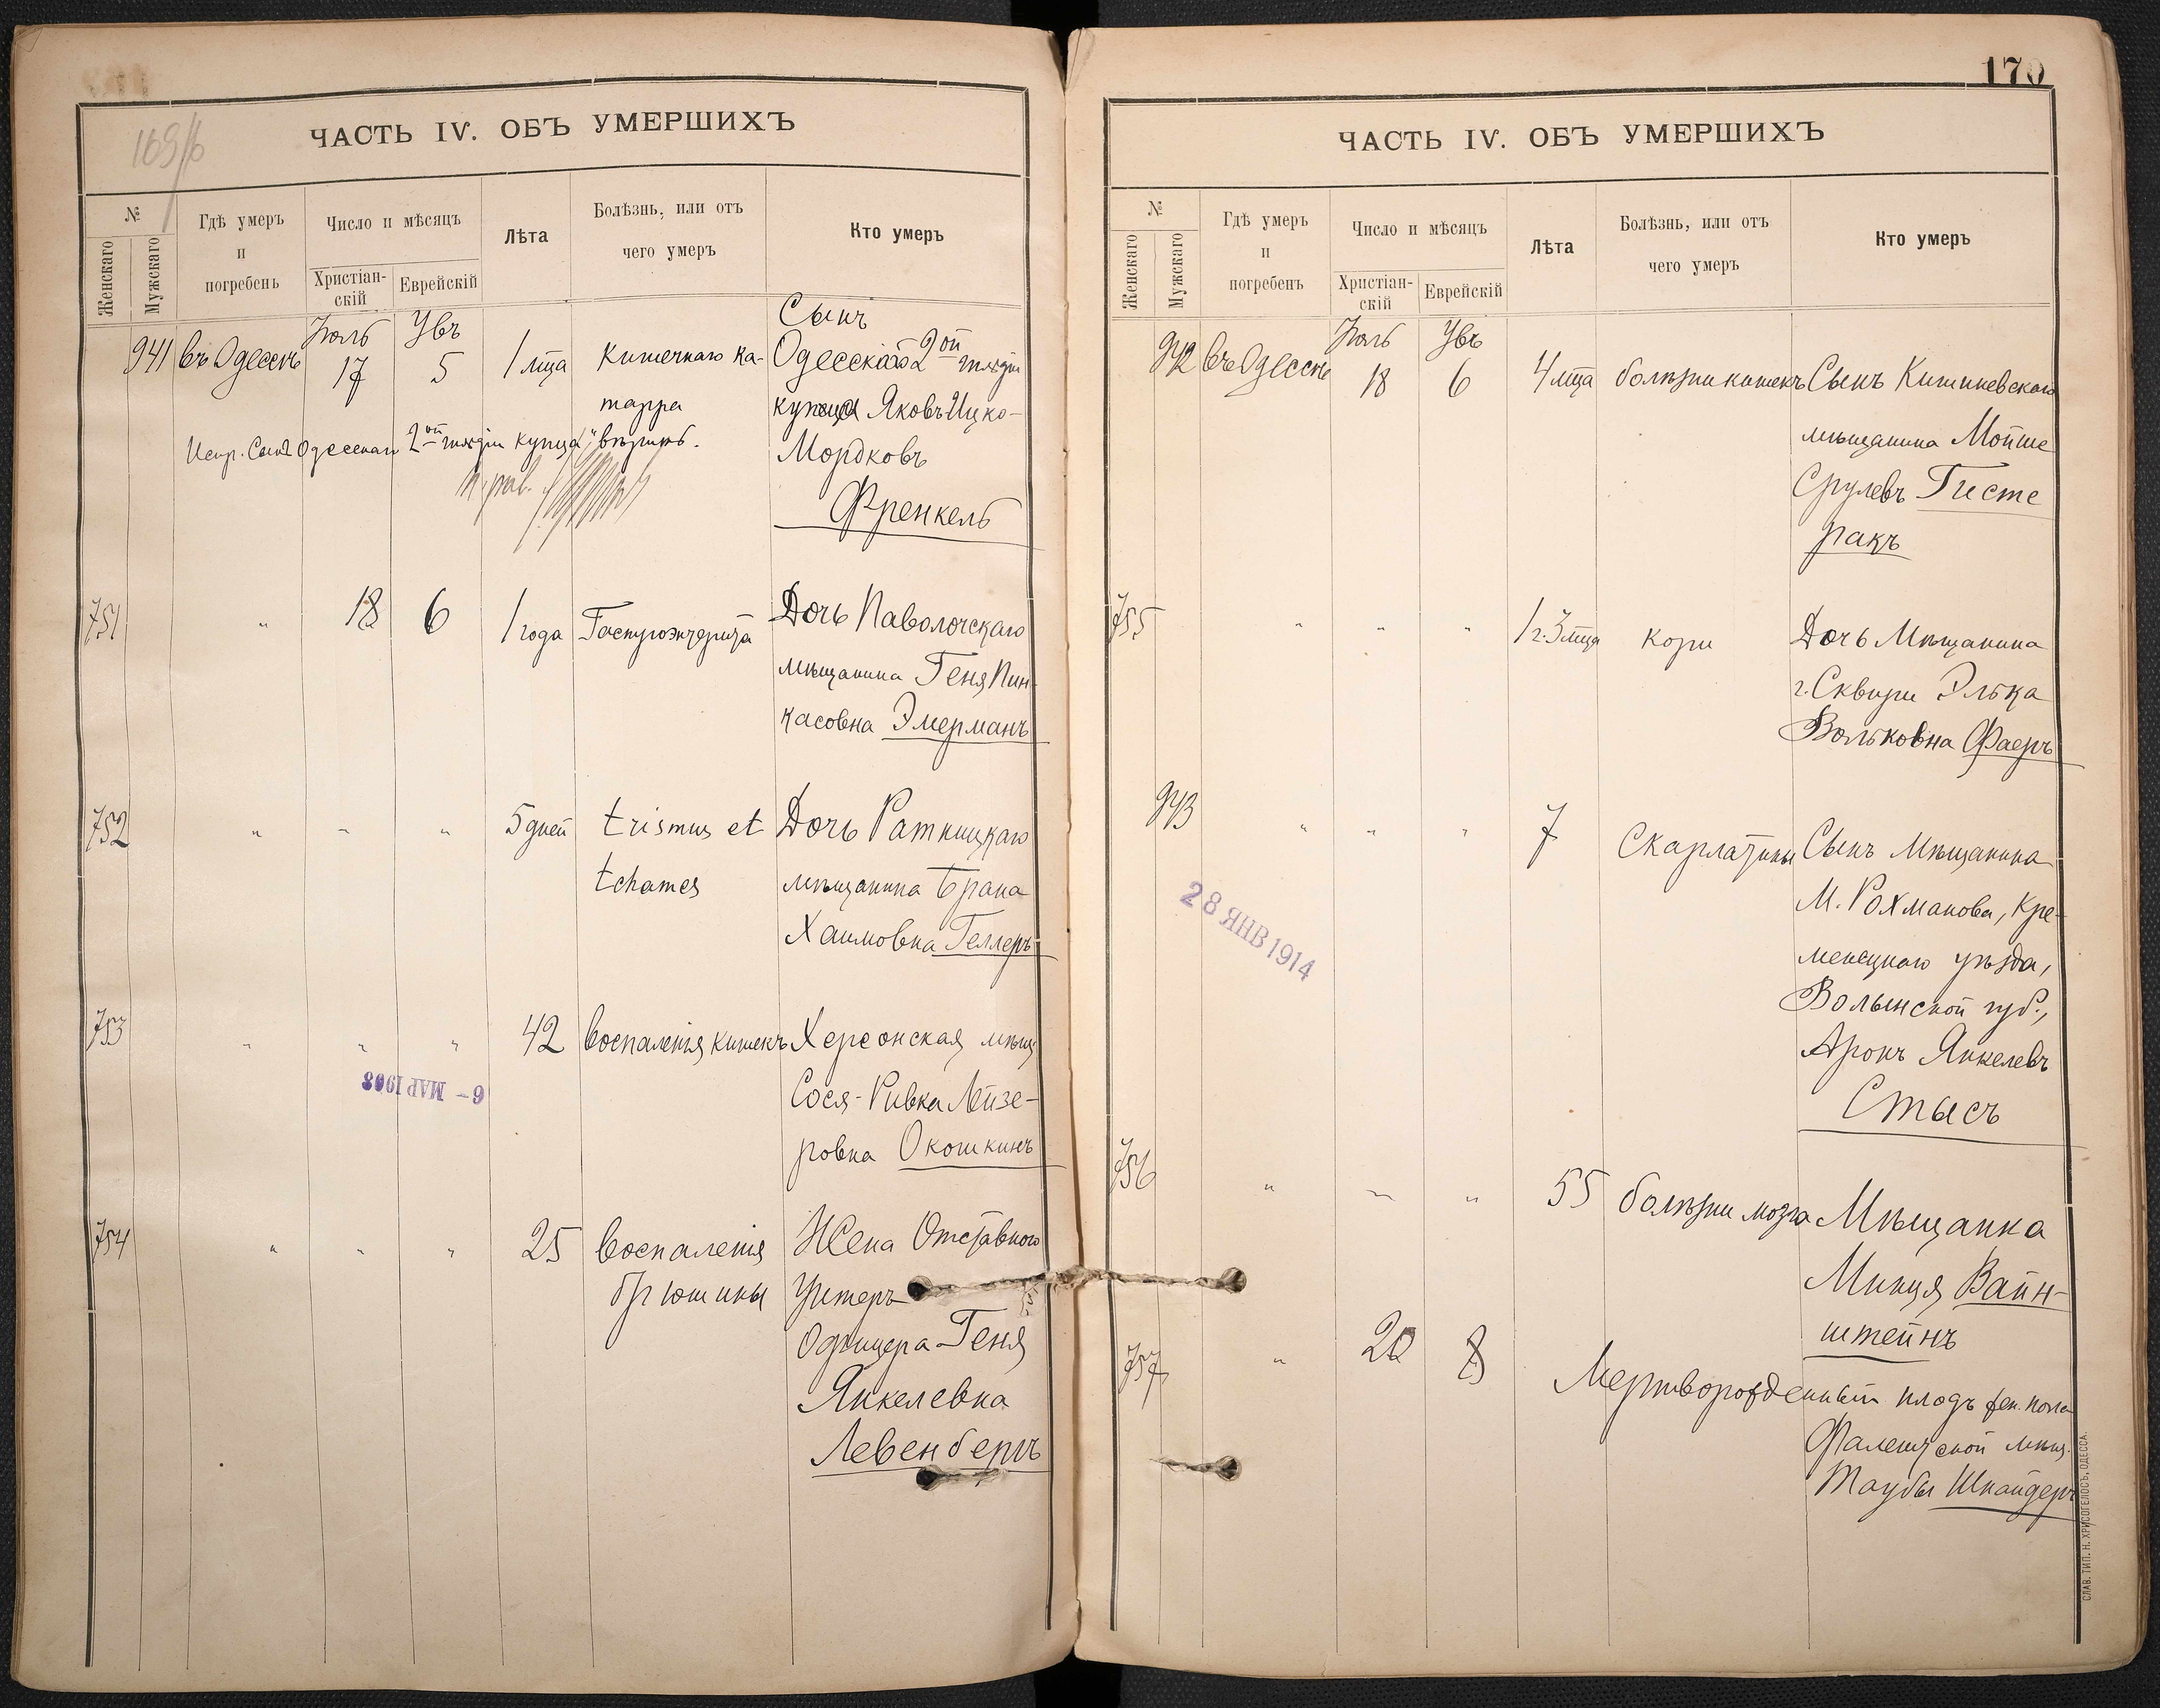 169/б
ЧАСТЬ IV. ОБЪ УМЕРШИХЪ
№
Женскаго
Мужскаго
Гдѣ умеръ
и
погребенъ
Число и мѣсяцъ
Христіан-
скій
Еврейскій
Лѣта
Болѣзнь, или отъ
чего умеръ
Кто умеръ
941 въ Одессѣ Іюль 17 Увъ 5 1 мца Кишечнаго ка-
тарра
Сынъ
Одесскаго 2ой гильдіи
купца Яковъ Ицко-
Мордковъ
Френкель
Испр. Сынъ Одесскаго 2ой гильдіи купца, вѣрить.
751 " 18 6 1 года Гастроэнтерита
Дочь Паволочскаго
мѣщанина Геня Пин-
касовна Эмерманъ
752 " " " 5 дней trismus et
tehames
Дочь Ратницкаго
мѣщанина Брана
Хаимовна Геллеръ
753 " " " 42 воспаленія кишекъ
Херсонская мѣщ.
Сося-Ривка Лейзе-
ровна Окошкинъ
6 - МАР 1908
754 " " " 25 воспаленія
брюшины
Жена Отставного
Унтеръ
Офицера Геня
Янкелевна
Левенбергъ
170
ЧАСТЬ IV. ОБЪ УМЕРШИХЪ
№
Женскаго
Мужскаго
Гдѣ умеръ
и
погребенъ
Число и мѣсяцъ
Христіан-
скій
Еврейскій
Лѣта
Болѣзнь, или отъ
чего умеръ
Кто умеръ
942 въ Одессѣ Іюль 18 Увъ 6 4 мца болѣзни кишекъ
Сынъ Кишиневскаго
мѣщанина Мойше
Срулевъ Гисте
ракъ
755 " " " 1 г. 3 мца кори
Дочь Мѣщанина
г. Сквиры Элька
Вольковна Фаеръ
943 " " " 7 Скарлатины
Сынъ Мѣщанина
М. Рохманова, Кре-
менецкаго уѣзда,
Волынской губ.,
Аронъ Янкелевъ
Стысъ
28 ЯНВ 1914
756 " " " 55 болѣзни мозга
Мѣщанка
Минця Вайн-
штейнъ
757 " 20 8 Мертворожденный плодъ жен. пола
Фалештской мѣщ.
Таубы Шнайдеръ
СЛАВ. ТИП. Н. ХРИСОГЕЛОСЪ, ОДЕССА.